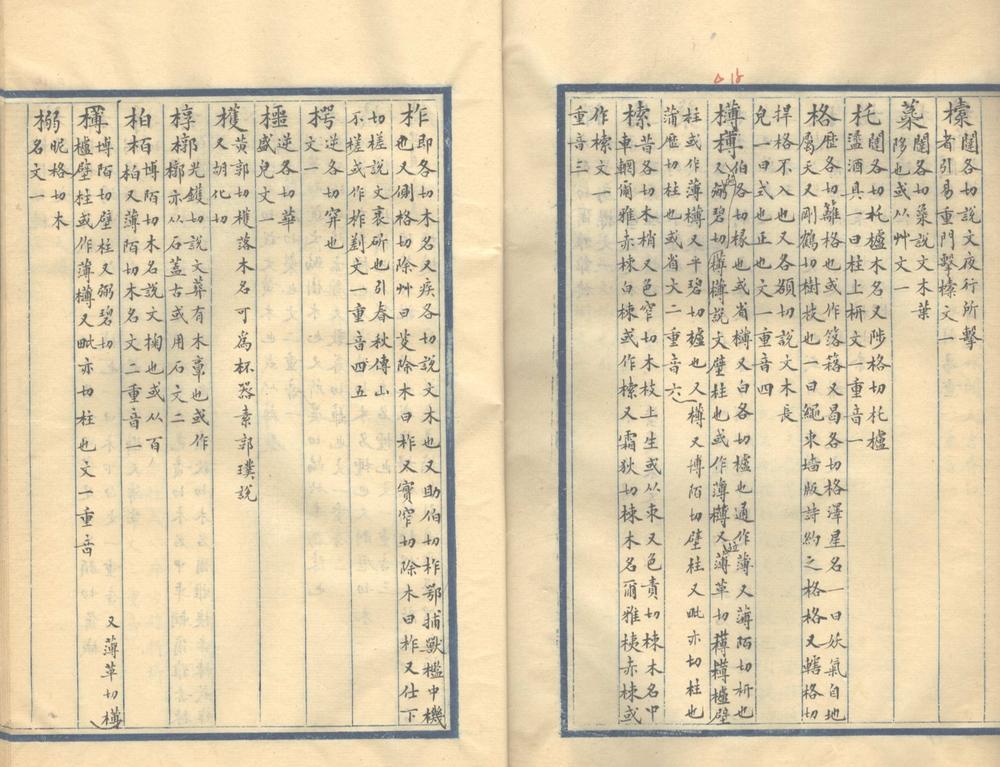 㯓闥各切說文夜行所擊
者引易重門擊㯓文一
蘀闥各切蘀說文木葉
陊也或从艸文一
托闥各切托櫨木名又陟格切托櫨
盪酒具一曰柱上枅文一重音一
格歷各切籬格也或作落簵又曷各切格澤星名一曰妖氣自地
屬天又剛鶴切樹技也一曰繩束墻版詩約之格格又轄格切
捍格不入也又各頟切說文木長
皃一曰式也正也文一重音四
欂㯷伯各切椽也或省㯷又白各切櫨也通作薄又薄陌切枅也
又弼碧切欂㯷說文壁柱也或作薄欂又薄革切欂㯷櫨壁
柱或作薄㯷又平碧切櫨也又㯷又博陌切壁柱又毗亦切柱也
蒲歷切柱也或省文二重音六
㮶昔各切木梢又色窄切木枝上生或从朿又色責切楝木名中
車輞爾雅赤楝白楝或作㮶又霜狄切楝木名爾雅桋赤楝或
作㮶文一
重音三
柞即各切木名又疾各切說文木也又助伯切柞鄂捕獸檻中機
也又側格切除艸曰芟除木曰柞又實窄切除木曰柞又仕下
切槎說文衺斫也引春秋傳山
不槎或作柞剗文一重音四五
㮙逆各切穽也
文一
櫮逆各切華
盛皃文一
檴黃郭切檴落木名可為杯器素郭璞說
又胡化切
椁槨光鑊切說文葬有木𩫏也或作
槨亦从石蓋古或用石文二
柏栢博陌切木名說文椈也或从百
柏又薄陌切木名文二重音一
欂博陌切壁柱又弼碧切
櫨壁柱或作薄㯷又毗亦切柱也文一重音
又薄革切欂
搦昵格切木
名文一